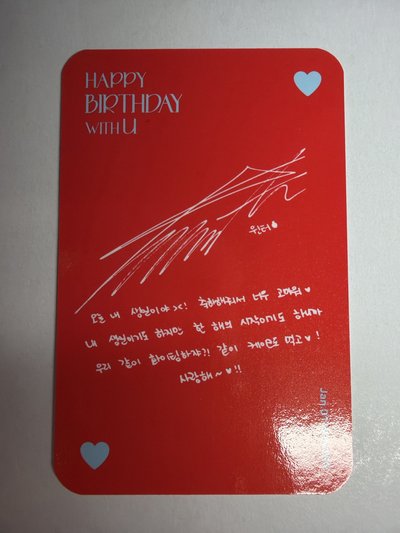 HAPPY
BIRTHDAY
WITH U
윈터♥
오늘 내 생일이야><! 축하해줘서 너무 고마워♥
내 생일이기도 하지만 한 해의 시작이기도 하니까
우리 같이 화이팅하쟈?! 같이 케이크도 먹고♥!
사랑해~♥!!
Jan.01